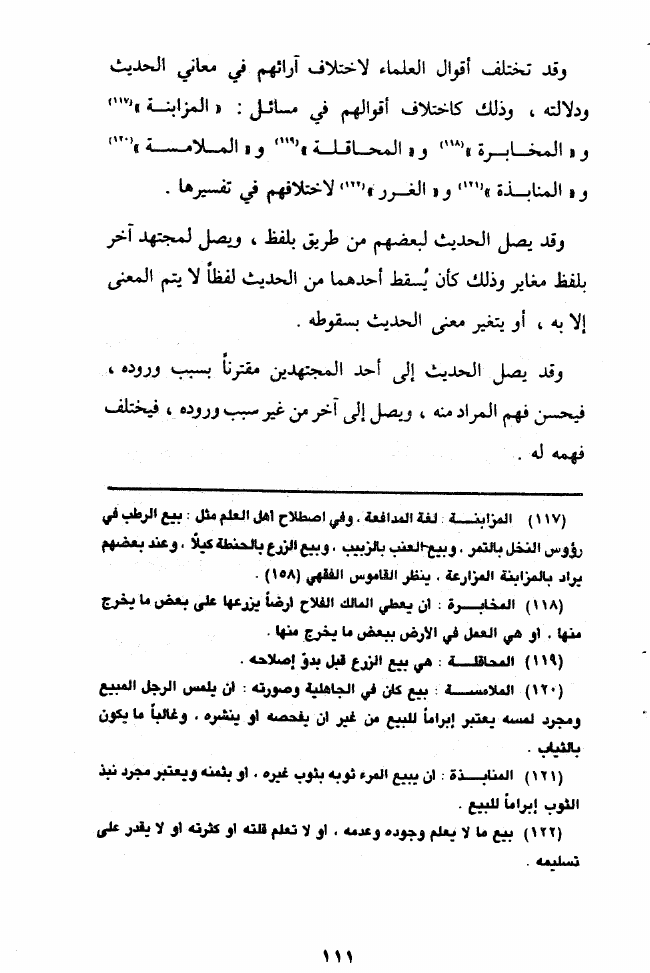 وقد تختلف أقوال العلماء لاختلاف آرائهم في معاني الحديث
ودلالته ، وذلك كاختلاف أقوالهم في مسائل : « المزابنة »(١١٧)
و « المخابرة »(١١٨) و « المحاقلة »(١١٩) و « الملامسة »(١٢٠)
و « المنابذة »(١٢١) و « الغرر »(١٢٢) لاختلافهم في تفسيرها .
وقد يصل الحديث لبعضهم من طريق بلفظ ، ويصل لمجتهد آخر
بلفظ مغاير وذلك كأن يُسقط أحدهما من الحديث لفظاً لا يتم المعنى
إلا به ، أو يتغير معنى الحديث بسقوطه .
وقد يصل الحديث إلى أحد المجتهدين مقترناً بسبب وروده ،
فيحسن فهم المراد منه ، ويصل إلى آخر من غير سبب وروده ، فيختلف
فهمه له .
(١١٧) المزابنة : لغة المدافعة ، وفي اصطلاح أهل العلم مثل : بيع الرطب في
رؤوس النخل بالتمر ، وبيع العنب بالزبيب ، وبيع الزرع بالحنطة كيلاً ، وعند بعضهم
يراد بالمزابنة المزارعة ، ينظر القاموس الفقهي (١٥٨) .
(١١٨) المخابرة : أن يعطي المالك الفلاح أرضاً يزرعها على بعض ما يخرج
منها ، أو هي العمل في الأرض ببعض ما يخرج منها .
(١١٩) المحاقلة : هي بيع الزرع قبل بدوّ إصلاحه .
(١٢٠) الملامسة : بيع كان في الجاهلية وصورته : أن يلمس الرجل المبيع
ومجرد لمسه يعتبر إبراماً للبيع من غير أن يفحصه أو ينشره ، وغالباً ما يكون
بالثياب .
(١٢١) المنابذة : أن يبيع المرء ثوبه بثوب غيره ، أو بثمنه ويعتبر مجرد نبذ
الثوب إبراماً للبيع .
(١٢٢) بيع ما لا يعلم وجوده وعدمه ، أو لا تعلم قلته أو كثرته أو لا يقدر على
تسليمه .
١١١